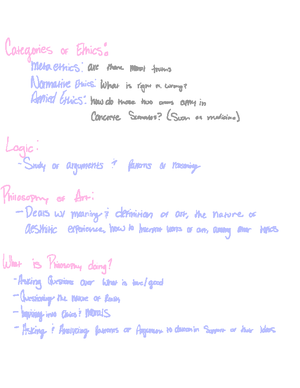 Categories of Ethics:
Meta ethics: are there moral
Normative Ethics: What is right or wrong?
Applied Ethics: how do these two areas apply in
Concrete Scenarios? (Such as medicine)
Logic:
- Study of arguments & patterns of reasoning
Philosophy of Art:
- Deals w/ meaning & definition of art, the nature of
aesthetic experience, how to interpret works of art, among other topics
What is Philosophy doing?
- Asking Questions over what is true/good
- Questioning the nature of
- Inquiring into Ethics & MORALS
- Asking & Analyzing patterns of Arguments to in Support of their ideas